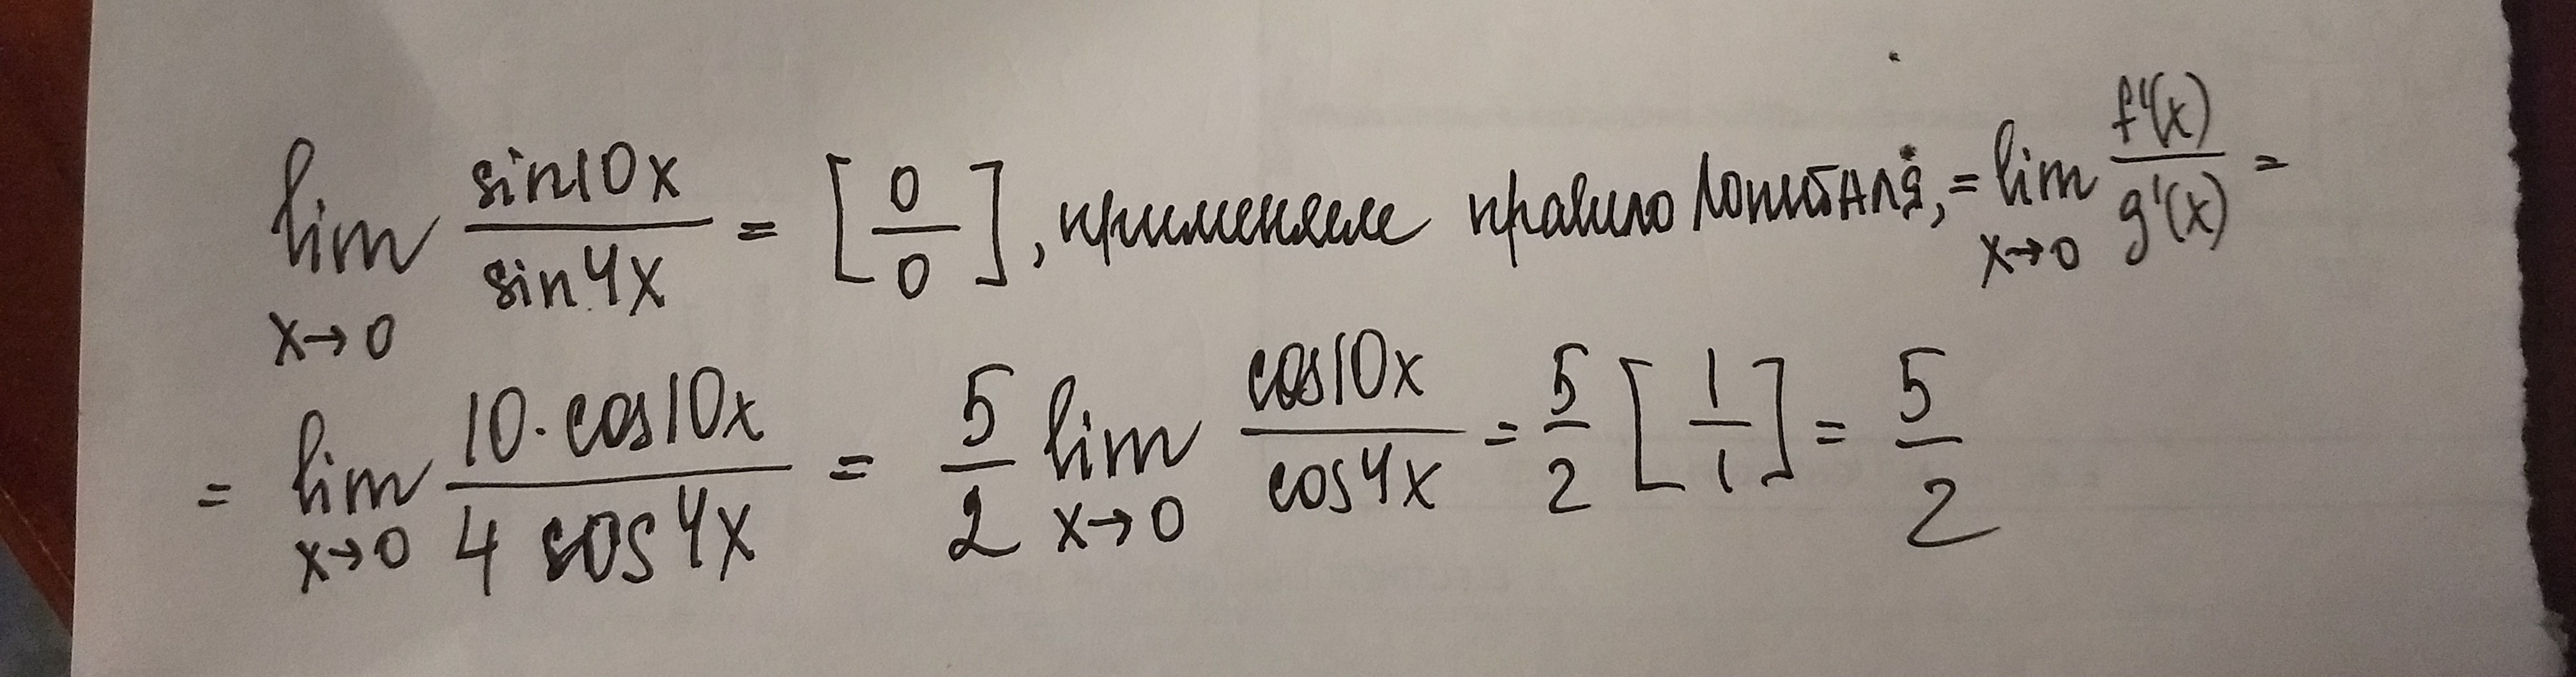 lim x→0 sin10x / sin4x = [0/0], применяем правило Лопиталя, = lim x→0 f'(x) / g'(x) =
= lim x→0 10·cos10x / 4 cos4x = 5/2 lim x→0 cos10x / cos4x = 5/2 [1/1] = 5/2